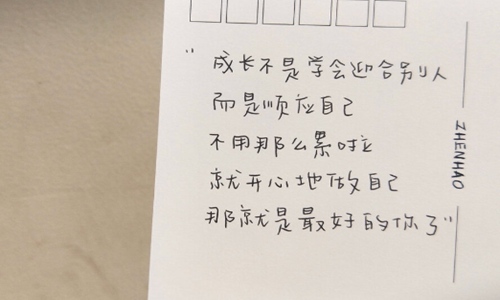 “成长不是学会迎合别人
而是顺应自己
不用那么累啦
就开心地做自己
那就是最好的你了”
ZHENHAO